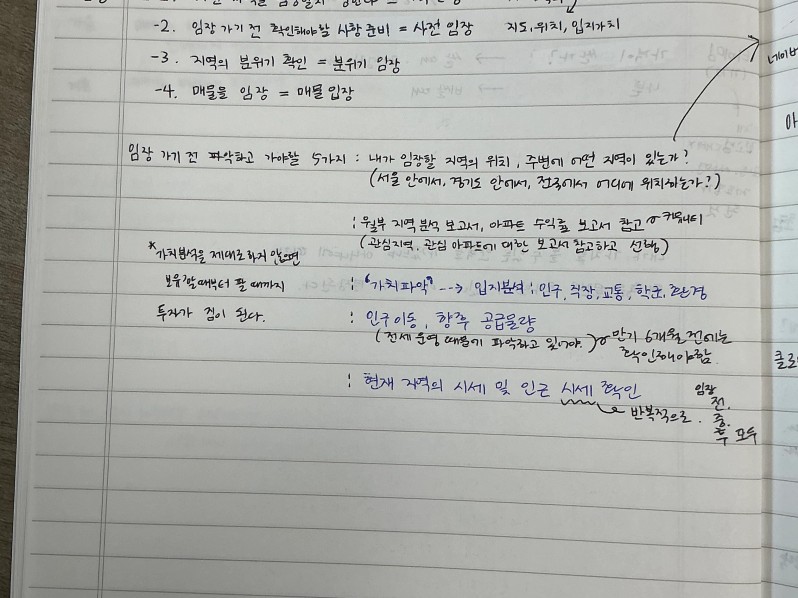 -2. 임장 가기 전 확인해야할 사항 준비 = 사전 임장 지도, 위치, 입지가치
-3. 지역의 분위기 확인 = 분위기 임장
-4. 매물을 임장 = 매물 임장
네이버
임장 가기 전 파악하고 가야할 5가지 : 내가 임장할 지역의 위치, 주변에 어떤 지역이 있는가?
(서울 안에서, 경기도 안에서, 전국에서 어디에 위치하는가?)
: 월부 지역 분석 보고서, 아파트 수익률 보고서 참고 커뮤니티
(관심지역, 관심 아파트에 대한 보고서 참고하고 선행)
* 가치분석을 제대로 하지 않으면
보유할때부터 팔 때까지
투자가 짐이 된다.
: "가치파악" --> 입지분석 : 인구, 직장, 교통, 학군, 환경
: 인구이동, 향후 공급물량
(전세 운영 때문에 파악하고 있어야.) 만기 6개월 전에는
확인해야함.
: 현재 지역의 시세 및 인근 시세 확인
반복적으로.
임장
전.
중.
후 모두